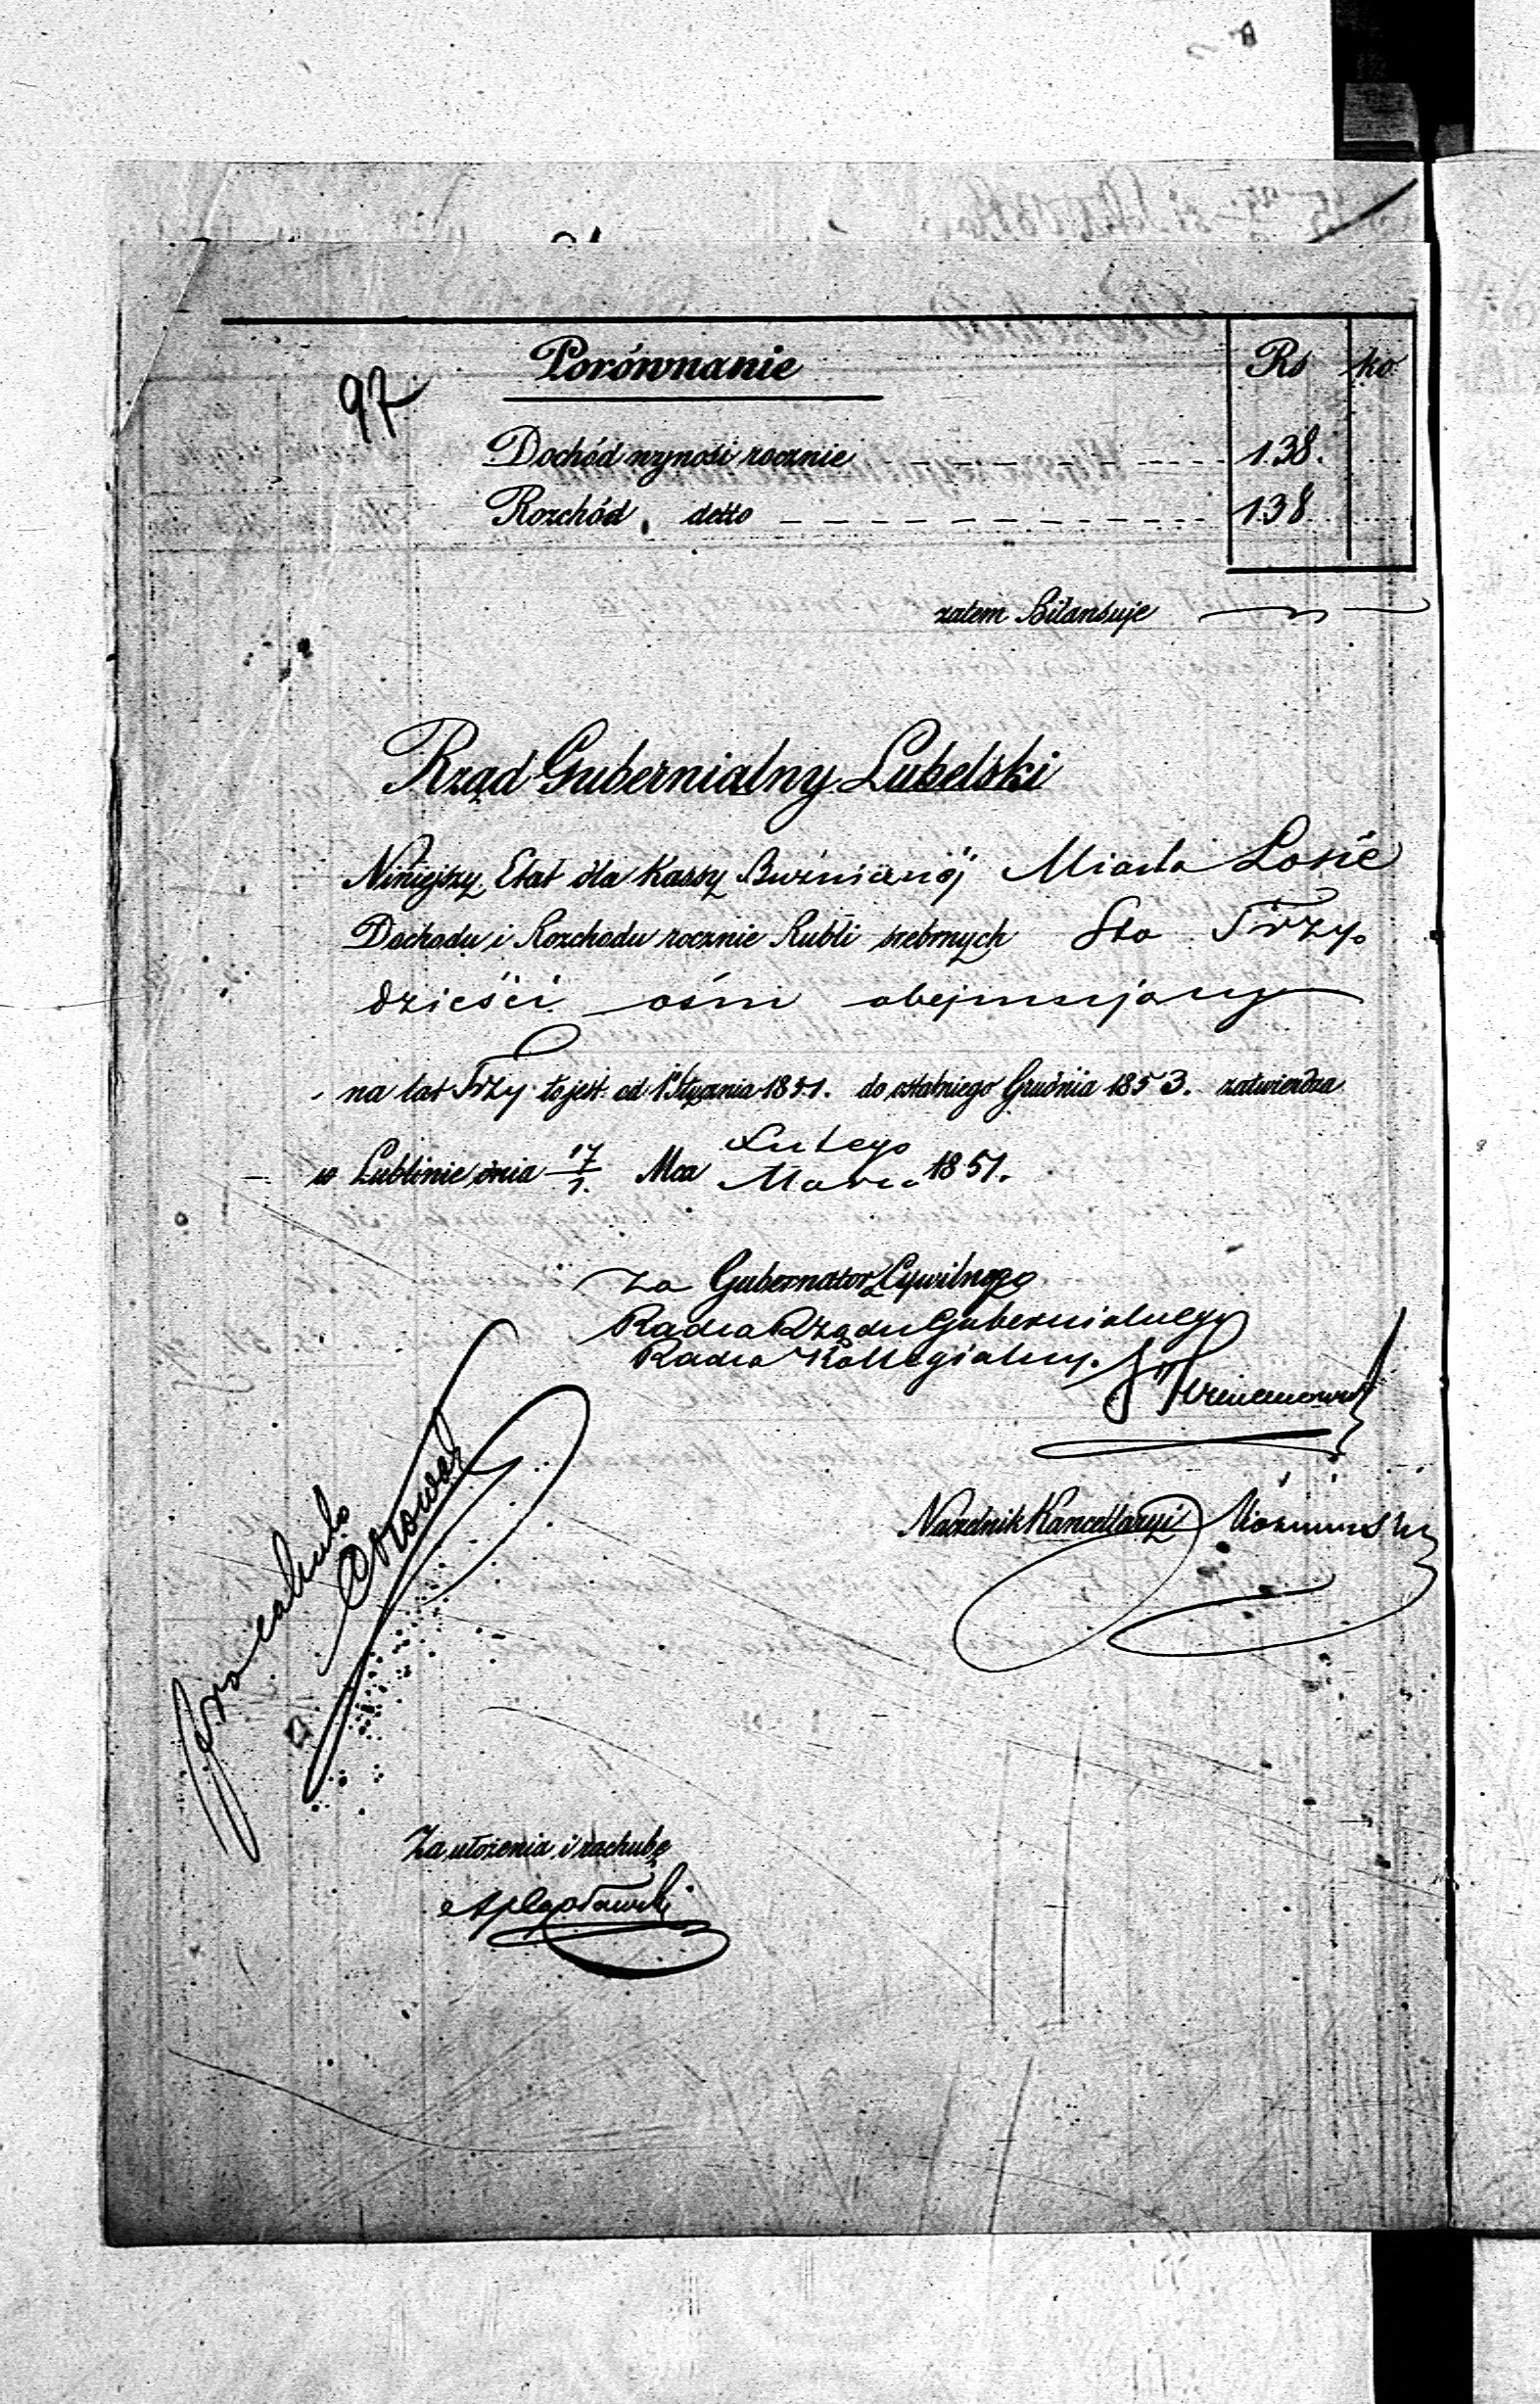 Porównanie Rs ko
97
Dochód wynosi rocznie 138.
Rozchód, detto 138
zatem Bilansuje
Rząd Gubernialny Lubelski
Niniejszy Etat dla Kassy Bużniczéj Miasta Łosic
Dochodu i Rozchodu rocznie Rubli srebrnych Sto Trzy-
dzieści ośm obejmujący
na lat Trzy to jest od 1 Stycznia 1851. do ostatniego Grudnia 1853. zatwierdza
w Lublinie dnia 17/1. Mca Lutego/Marca 1851.
Za Gubernatora Cywilnego
Radca Rządu Gubernialnego
Radca Kollegialny.
Naczelnik Kancellaryi
Za ułożenia i rachubę